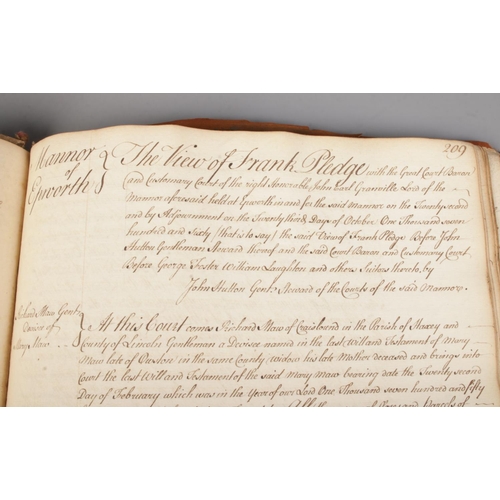 209
Mannor
of
Epworth
The View of Frank Pledge with the Great Court Baron
and Customary Court of the right Honorable John Earl Granville Lord of the
Mannor aforesaid held at Epworth in and for the said mannor on the Twenty second
and by Adjournment on the Twenty third Days of October One Thousand seven
hundred and Sixty (that is to say) the said View of Frank Pledge Before John
Hutton Gentleman Steward thereof and the said Court Baron and Customary Court
Before George Foster William Laughton and others Suitors thereto, by
John Hutton Gent: Steward of the Courts of the said Mannor.
Richard Maw Gent:
Devisee of
Mary Maw
At this Court comes Richard Maw of Craiselound in the Parish of Haxey and
County of Lincoln Gentleman a Devisee named in the last Will and Testament of Mary
Maw late of Owston in the same County Widow his late Mother deceased and brings into
Court the last Will and Testament of the said Mary Maw bearing date the Twenty second
Day of February which was in the Year of our Lord One Thousand seven hundred and fifty